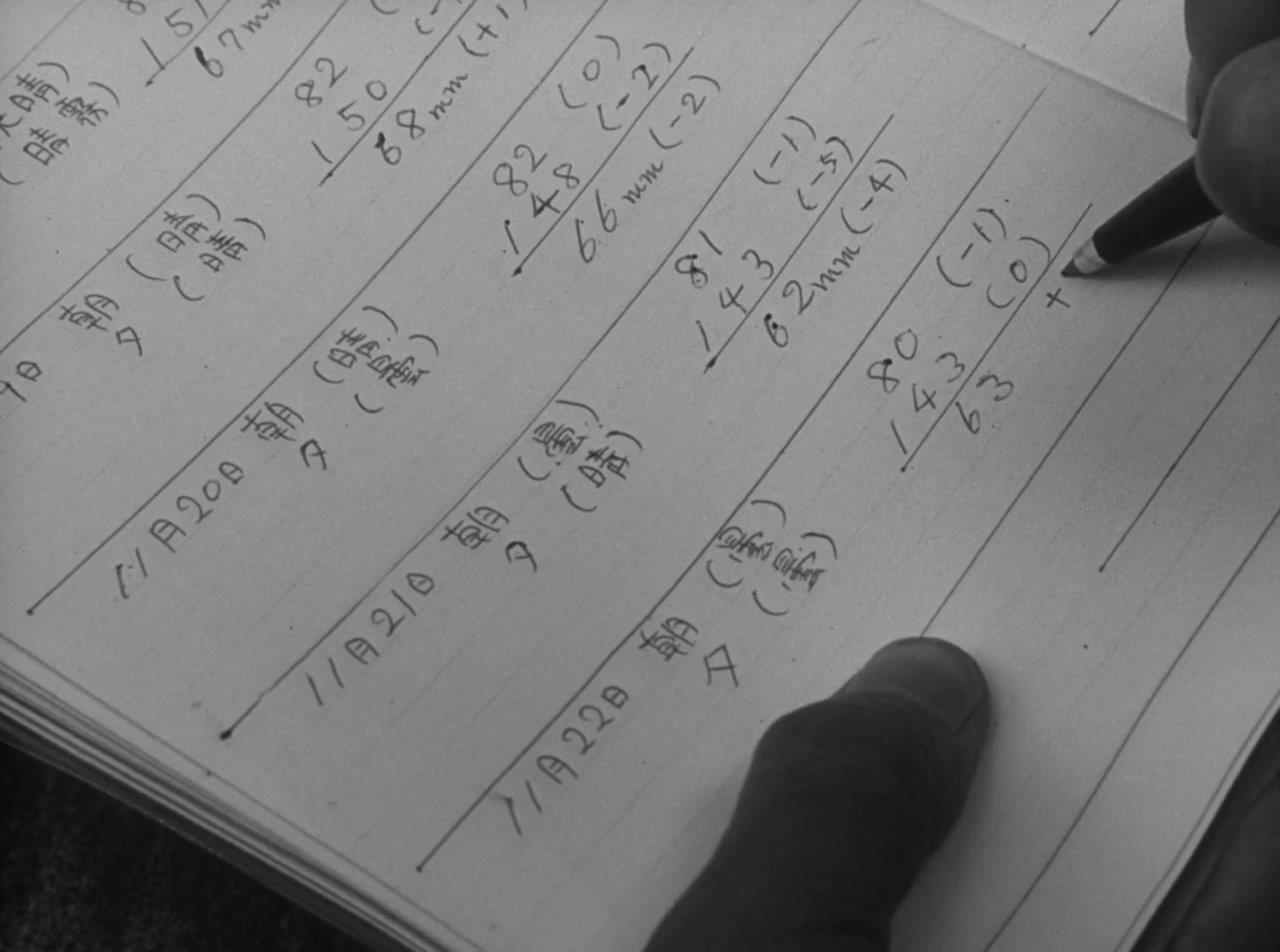 151
67mm
9日 朝 (晴) 82
夕 (晴) 150
68mm (+1
11月20日 朝 (晴) 82 (0)
夕 (曇) 148 (-2)
66mm (-2)
11月21日 朝 (曇) 81 (-1)
夕 (晴) 143 (-5)
62mm (-4)
11月22日 朝 (曇) 80 (-1)
夕 (曇) 143 (0)
63 +